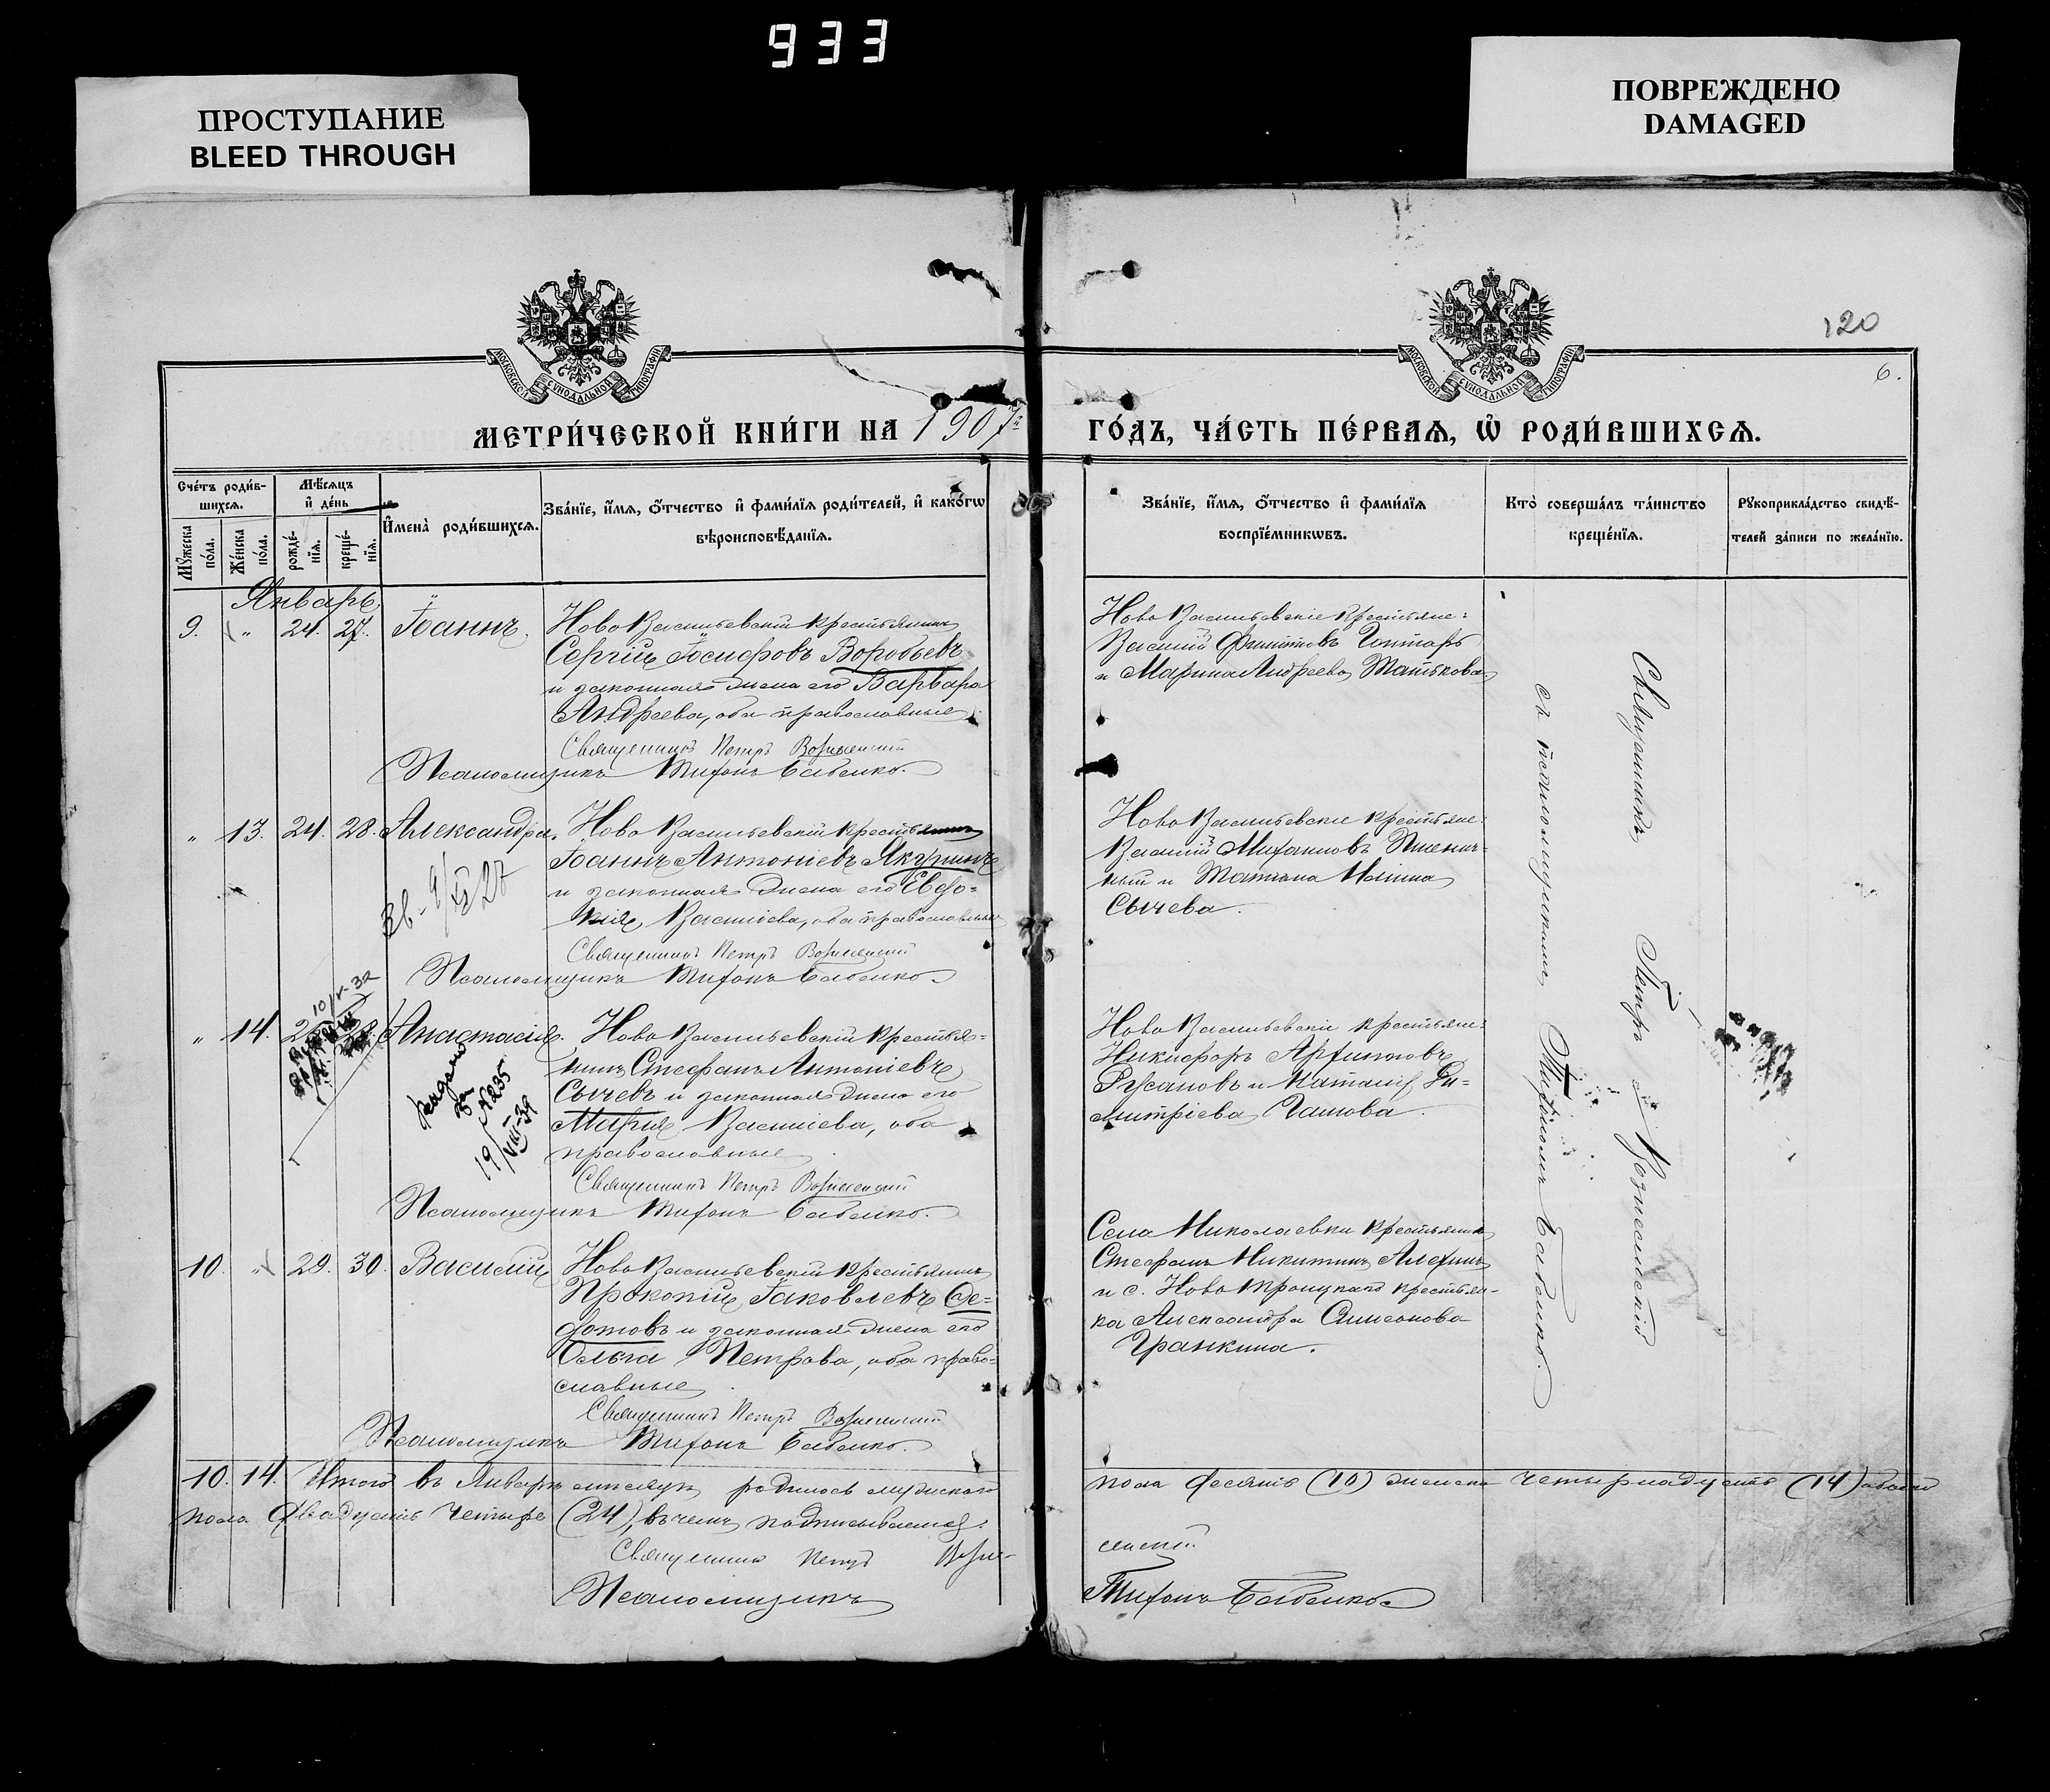 933
ПРОСТУПАНИЕ
BLEED THROUGH
ПОВРЕЖДЕНО
DAMAGED
МОСКОВСКОЙ СѴНОДАЛЬНОЙ ТИПОГРАФІИ
МОСКОВСКОЙ СѴНОДАЛЬНОЙ ТИПОГРАФІИ
120
6.
МЕТРИ́ЧЕСКОЙ КНИ́ГИ НА 1907й
ГО́ДЪ, ЧА́СТЬ ПЕ́РВАѦ, Ѡ҆ РОДИ́ВШИХСѦ.
Сче́тъ роди́в-
шихсѧ.
Мѣ́сѧцъ
и҆ де́нь
Мꙋ́жеска
по́ла.
Же́нска
по́ла.
рожде́-
нїѧ.
креще́-
нїѧ.
И҆мена̀ роди́вшихсѧ.
Зва́нїе, и҆́мѧ, ѻ҆́тчество и҆ фами́лїѧ роди́телей, и҆ како́гѡ
вѣроисповѣ́данїѧ.
Зва́нїе, и҆́мѧ, ѻ҆́тчество и҆ фами́лїѧ
воспрїе́мникѡвъ.
Кто̀ соверша́лъ та́инство
креще́нїѧ.
Рꙋкоприкла́дство свидѣ́-
телей за́писи по жела́нїю.
Январь
9. " 24. 27. Іоаннъ.
Ново Васильевскій крестьянинъ
Сергій Іосифовъ Воробьевъ
и законная жена его Варвара
Андреева, оба православные.
Священникъ Петръ Вознесенскій
Псаломщикъ Тихонъ Бабенко.
Ново Васильевскіе крестьяне:
Василій Филиповъ
и Марина Андреева
" 13. 24. 28. Александра.
Ново Васильевскій крестьянинъ
Іоаннъ Антоніевъ Якушинъ
и законная жена его Евфо-
нія Васильева, оба православные
Священникъ Петръ Вознесенскій
Псаломщикъ Тихонъ Бабенко.
Ново Васильевскіе крестьяне:
Василій Михаиловъ Пшенич-
ный и Татіана
Сычева.
" 14. Анастасія.
Ново Васильевскій крестья-
нинъ Стефанъ Антоніевъ
Сычевъ и законная жена его
Марія Васильева, оба
православные
Священникъ Петръ Вознесенскій
Псаломщикъ Тихонъ Бабенко.
№235
19/VIII-39
Ново Васильевскіе крестьяне:
Никифоръ
Русановъ и Наталія Ди-
митріева
10. " 29. 30. Василій
Ново Васильевскій крестьянинъ
Прокопій Іаковлевъ Фе-
дотовъ и законная жена его
Ольга Петрова, оба право-
славные
Священникъ Петръ Вознесенскій
Псаломщикъ Тихонъ Бабенко.
Села Николаевки крестьянинъ
Стефанъ Никитинъ Алехинъ
и с. Ново Троицкаго крестьян-
ка Александра Симеонова
Гранкина.
Священникъ Петръ Вознесенскій
съ псаломщикомъ Тихономъ Бабенко.
10. 14. Итого въ Январѣ мѣсяцѣ родилось мужескаго
пола десять (10) женска четырнадцать (14) обоего
пола двадцать четыре (24), въ чемъ подписываемся:
Священникъ Петръ Возне-
сенскій
Псаломщикъ
Тихонъ Бабенко